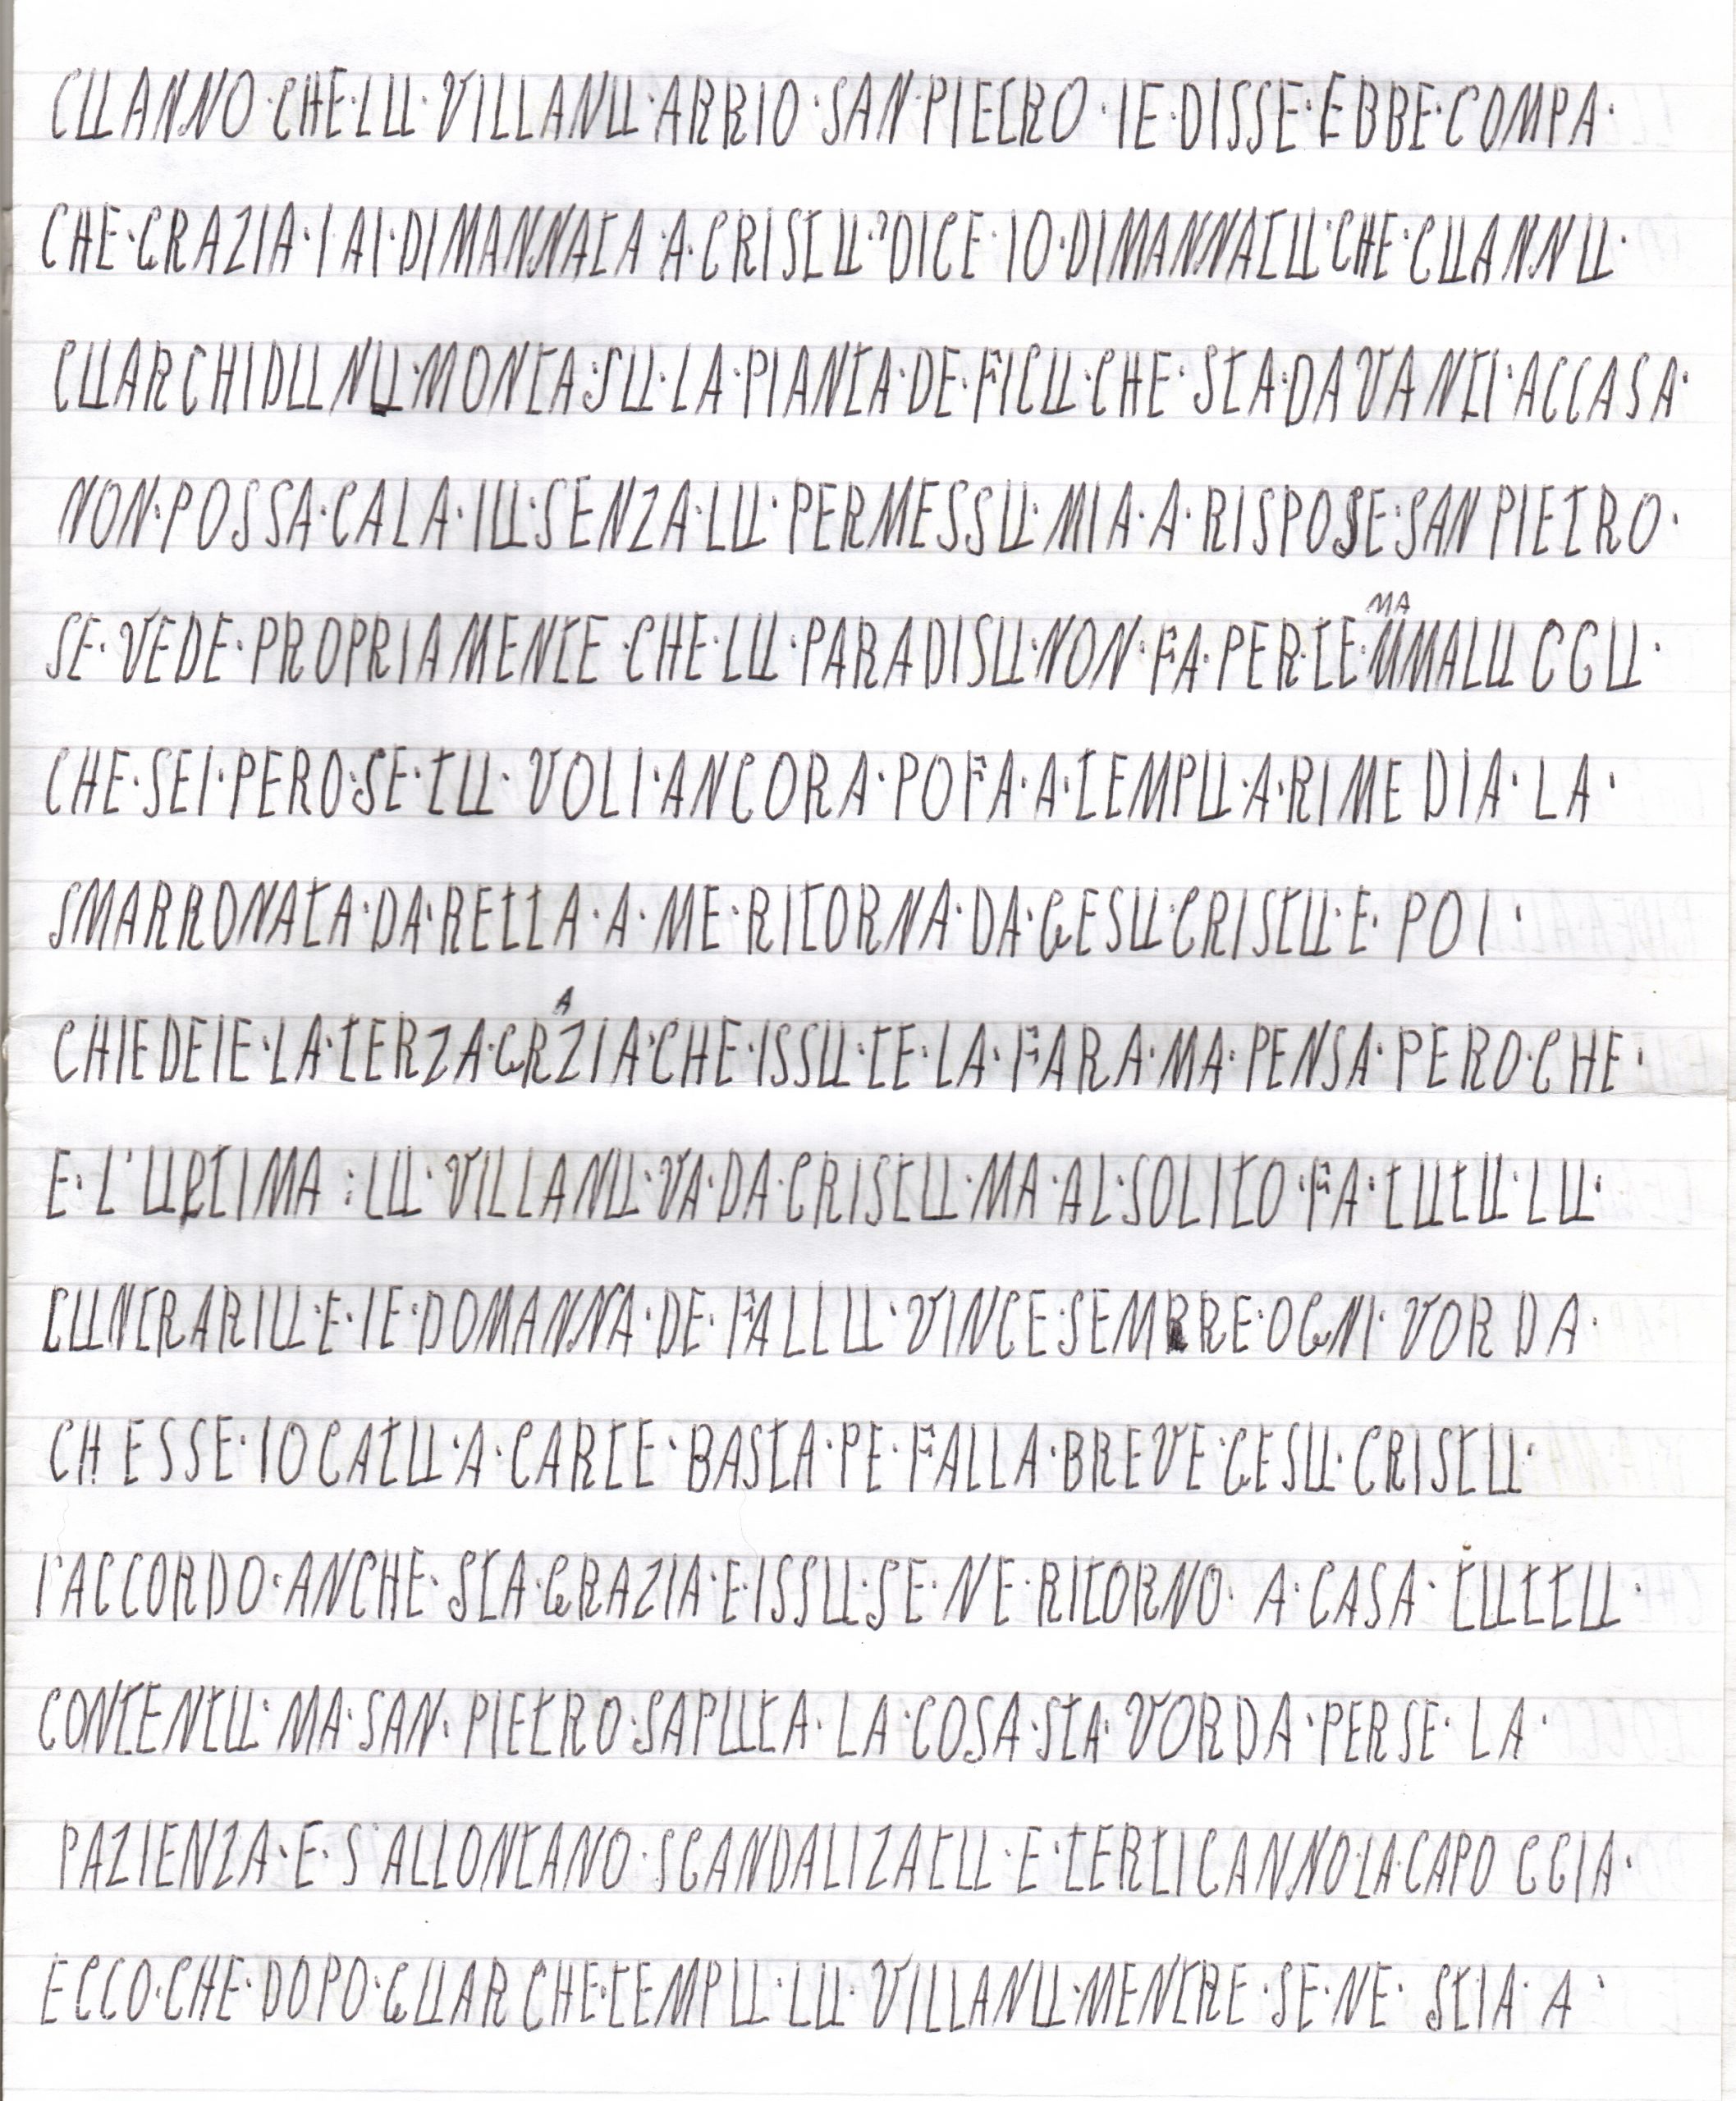 CUANNO·CHE·LU·VILLANU·ARRIO·SAN·PIETRO·IE·DISSE·EBBE·COMPA·
CHE·GRAZIA·I AI·DIMANNATA·A·CRISTU?DICE·IO·DIMANNATU·CHE·CUANNU·
CUARCHIDUNU·MONTA·SU·LA·PIANTA·DE·FICU·CHE·STA·DAVANTI·ACCASA·
NON·POSSA·CALA·IU·SENZA·LU·PERMESSU·MIA·A·RISPOSE·SAN PIETRO·
SE·VEDE·PROPRIAMENTE·CHE·LU·PARADISU·NON·FA·PER·TE·MAMMALUCGU·
CHE·SEI·PERO·SE·TU·VOLI·ANCORA·PO FA·A·TEMPU·A·RIMEDIA·LA·
SMARRONATA·DA·RETTA·A·ME·RITORNA·DA·GESU·CRISTU·E·POI·
CHIEDEIE·LA·TERZA·GRAZIA·CHE·ISSU·TE·LA·FARA·MA·PENSA·PERO·CHE·
E·L'URTIMA:LU·VILLANU·VA·DA·CRISTU·MA·AL·SOLITO·FA·TUTU·LU·
CUNTRARIU·E·IE·DOMANNA·DE·FALLU·VINCE·SEMRRE·OGNI·VORDA·
CHESSE·IOCATU·A·CARTE·BASTA·PE·FALLA·BREVE·GESU·CRISTU·
I'ACCORDO·ANCHE·STA·GRAZIA·E·ISSU·SE·NE·RITORNO·A·CASA·TUTTU·
CONTENTU·MA·SAN·PIETRO·SAPUTA·LA·COSA·STA·VORDA·PERSE·LA·
PAZIENZA·E·S'ALLONTANO·SCANDALIZATU·E·TERTICANNO·LA·CAPOCGIA·
ECCO·CHE·DOPO·GUARCHE·TEMPU·LU·VILLANU·MENTRE·SE·NE·STIA·A·